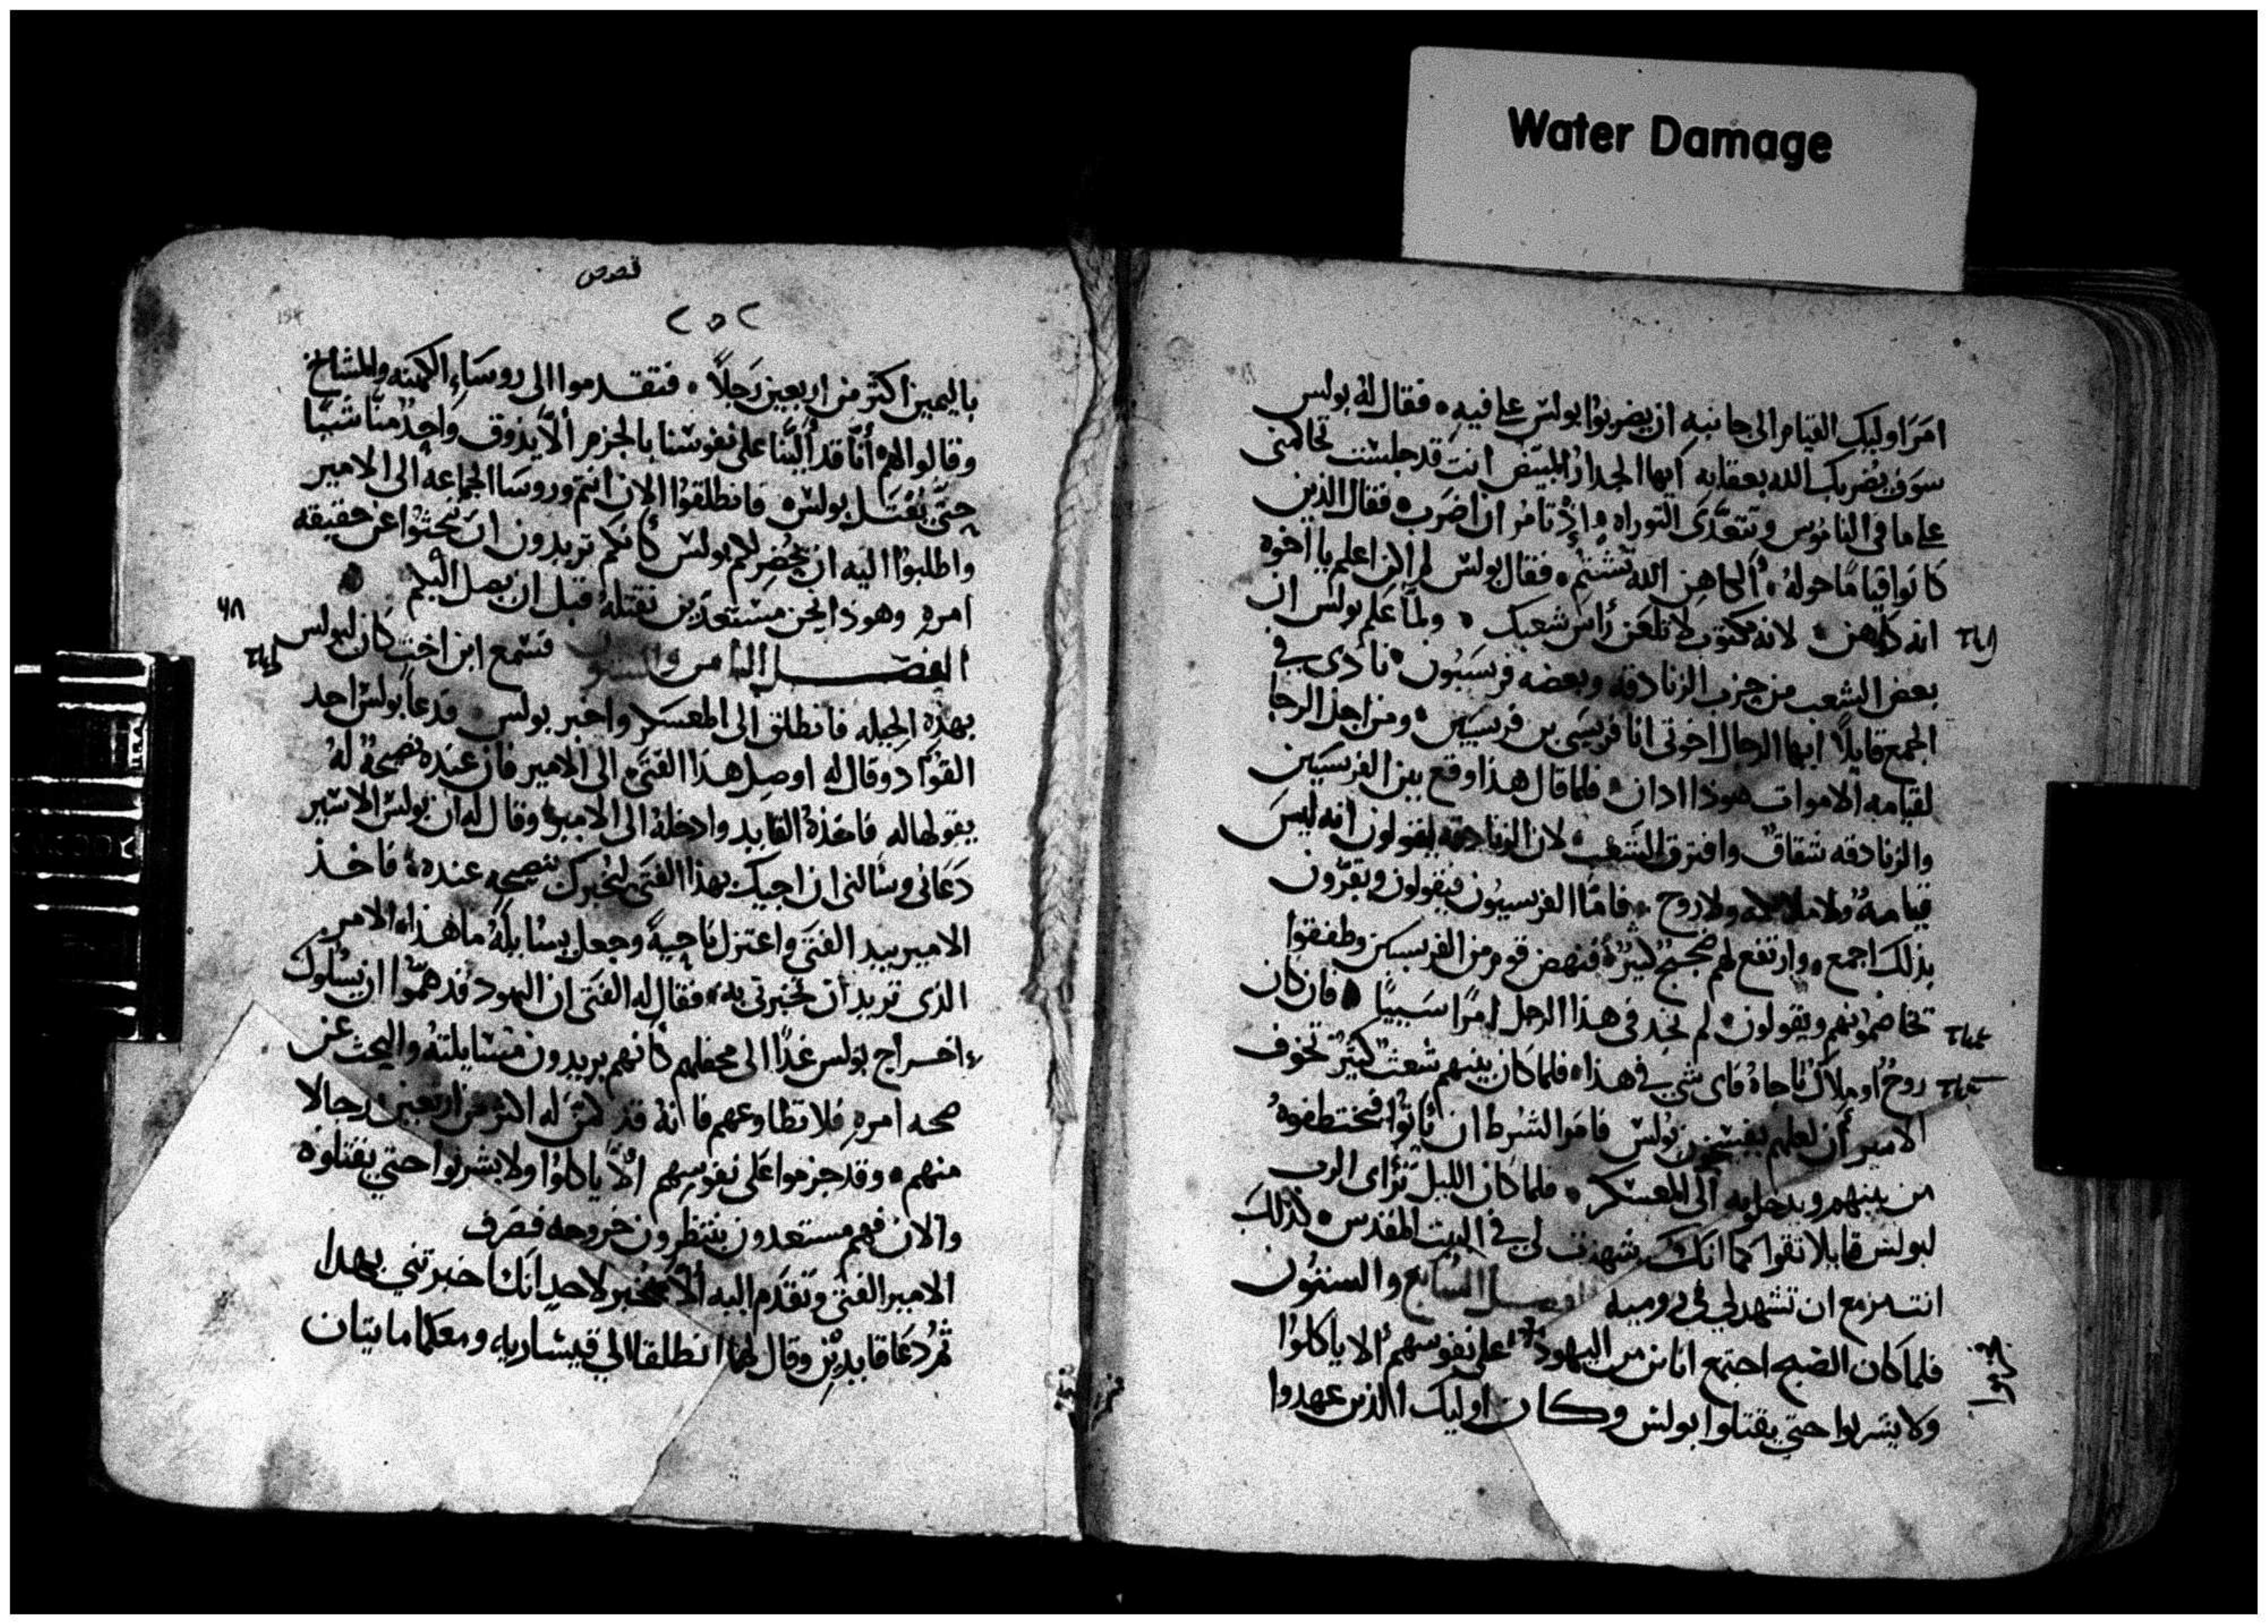 Water Damage
امر اوليك القيام الى جانبه ان يضربوا بولس على فيه فقال له بولس
سوف يضربك الله بعقابه ايها الجدار المبيض انت قد جلست تحاكمنى
على ما فى الناموس وتتعدى التوراه وإذ تامر ان اضرب فقال الذين
كانوا قياما حوله ألكاهن الله تشتم فقال بولس لم اكن اعلم يا اخوه
انه كاهن لانه مكتوب لا تلعن رأس شعبك ولما علم بولس ان
بعض الشعب من حزب الزنادقه وبعضه فريسيون نادى فى
الجمع قايلا ايها الرجال اخوتى انا فريسى بن فريسيين ومن اجل الرجا
لقيامه الاموات هوذا ادان فلما قال هذا وقع بين الفريسيين
والزنادقه شقاق وافترق الشعب لان الزنادقه يقولون انه ليس
قيامة ولا ملايكه ولا روح فاما الفريسيون فيقولون ويقرون
بذلك اجمع وارتفع لهم ضجيج كثيرة فنهض قوم من الفريسيين وطفقوا
تخاصمونهم ويقولون لم نجد فى هذا الرجل امرا سييا فان كان
روح او ملاك ناجاه فاى شى فى هذا فلما كان بينهم شعث كثير تخوف
الامير أن لعلهم يفسخون بولس فامر الشرط ان يأتوا فتختطفوه
من بينهم ويدخلوه الى المعسكر فلما كان الليل تراى الرب
لبولس قايلا تقوا كما انك شهدت لى فى البيت المقدس كذلك
انت مزمع ان تشهد لي فى روميه الفصل السابع والستون
فلما كان الصبح اجتمع اناس من اليهود على نفوسهم الا ياكلوا
ولا يشربوا حتى يقتلوا بولس وكان اوليك الذين عهدوا
قصص
٢٥٢
باليمين اكثر من اربعين رجلا فتقدموا الى روساء الكهنه والمشايخ
وقالوا لهم أنا قد ألبنا على نفوسنا بالجزم ألا يذوق واحد منا شيا
حتى يقتل بولس فانطلقوا الان انتم وروسا الجماعه الى الامير
واطلبوا اليه ان يحضر لكم بولس كأنكم تريدون ان تبحثوا عن حقيقه
امره وهوذا نحن مستعدين نقتله قبل ان يصل اليكم
٦٨
الفصل الثامن والستون فسمع ابن اخت كان لبولس
بهذه الحيله فانطلق الى المعسكر واخبر بولس فدعا بولس احد
القواد وقال له اوصل هذا الفتى الى الامير فان عنده نصيحة له
يقولها له فاخذه القايد وادخله الى الامير وقال له ان بولس الاسير
دعانى وسألنى ان اجيك بهذا الفتى ليخبرك بنصيحه عنده فاخذ
الامير بيد الفتى واعتزل ناحية وجعل يسايله ما هذا الامر
الذى تريد أن تخبرنى به فقال له الفتى ان اليهود قد هموا ان يسلوك
اخراج بولس غدا الى محفلهم كأنهم يريدون مسايلته والبحث عن
صحه امره فلا تطاوعهم فانه قد كمن له اكثر من اربعين رجالا
منهم وقد جزموا على نفوسهم ألا ياكلوا ولا يشربوا حتى يقتلوه
والان فهم مستعدون ينتظرون خروجه فصرف
الامير الفتى وتقدم اليه ألا تخبر لاحد انك اخبرتني بهدا
ثم دعا قايدين وقال لهما انطلقا الي قيساريه ومعكما مايتان